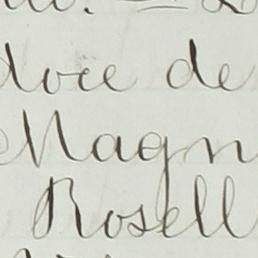 doce de
Magn
Rosell